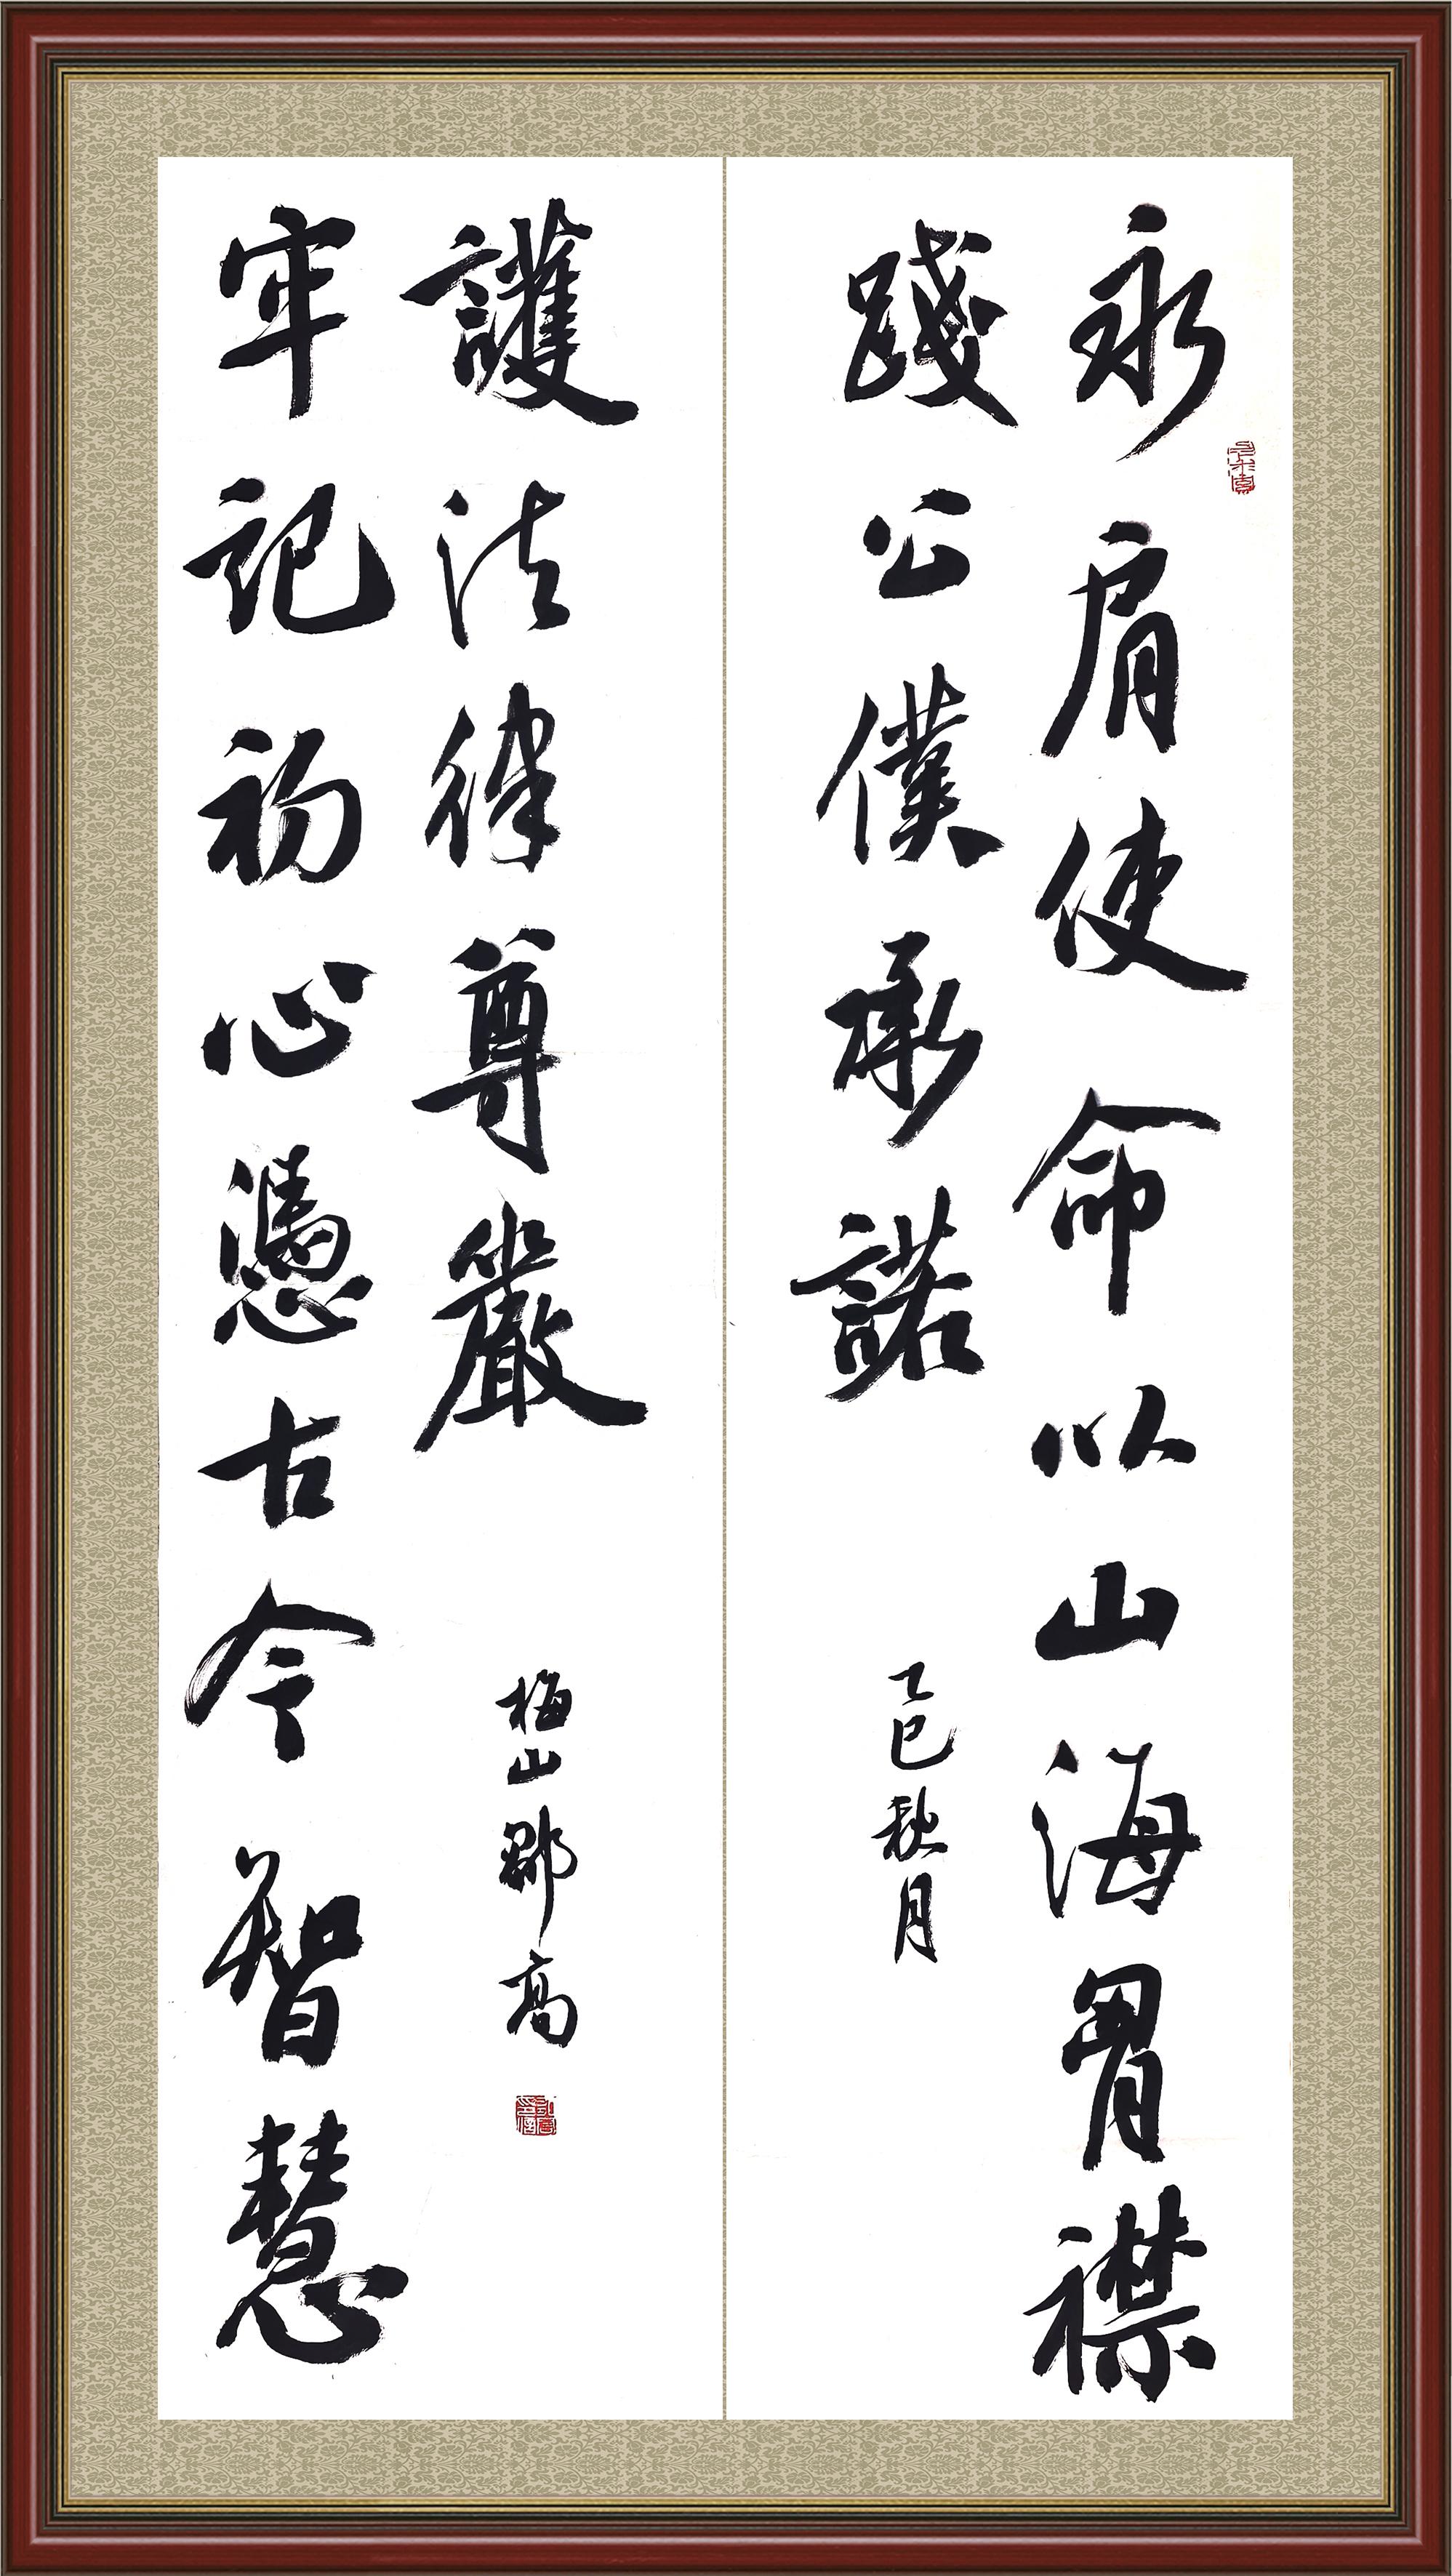 永肩使命以山海胷襟
踐公僕承諾
乙巳秋月
牢記初心憑古今智慧
護法律尊嚴
梅山鄒高